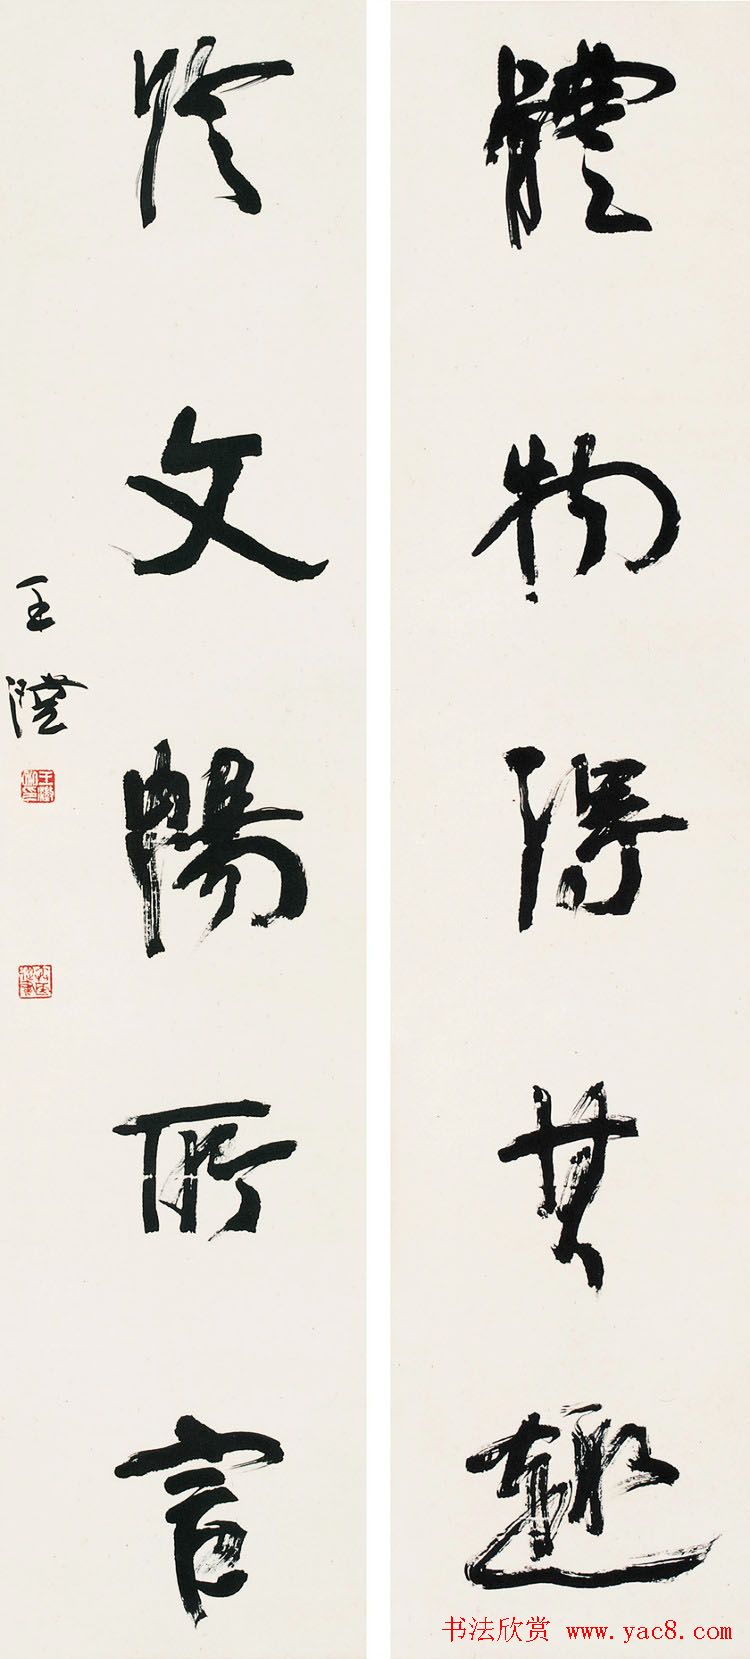 體物得其趣
於文暢所言
王澄
书法欣赏 www.yac8.com